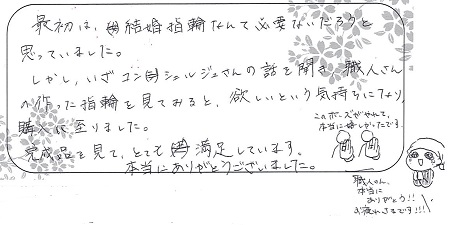 最初は、結婚指輪なんて必要ないだろうと
思っていました。
しかし、いざコンシェルジュさんの話を聞き、職人さん
の作った指輪を見てみると、欲しいという気持ちになり
購入に至りました。
完成品を見て、とても満足しています。
本当にありがとうございました。
このポーズがやれて、
本当に嬉しかったです
職人さん、
本当に
ありがとう!!
お疲れさまです!!!